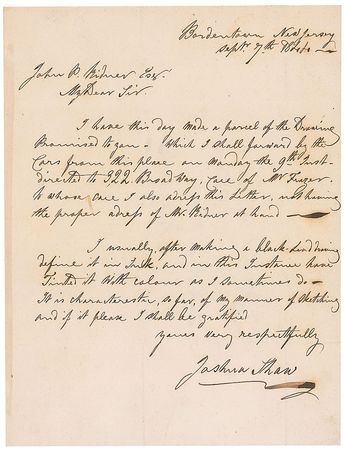 Bordentown New Jersey
Sept 7th 1844
John P. Ridner Esqr.
My Dear Sir.
I have this day made a parcel of the Drawing
Promised to you - which I shall forward by the
Cars from this place on Monday the 9th Inst-
directed to 322 Broadway, Care of Mr
to whose care I also adress this Letter, not having
the proper adress of Mr. Ridner at hand —
I usually, after making a black Lead drawing
define it in Ink, and in this Instance have
Tinted it with colour as I sometimes do -
It is characteristic, so far, of my manner of Sketching
and if it please I shall be gratified
yours very respectfully
Joshua Shaw